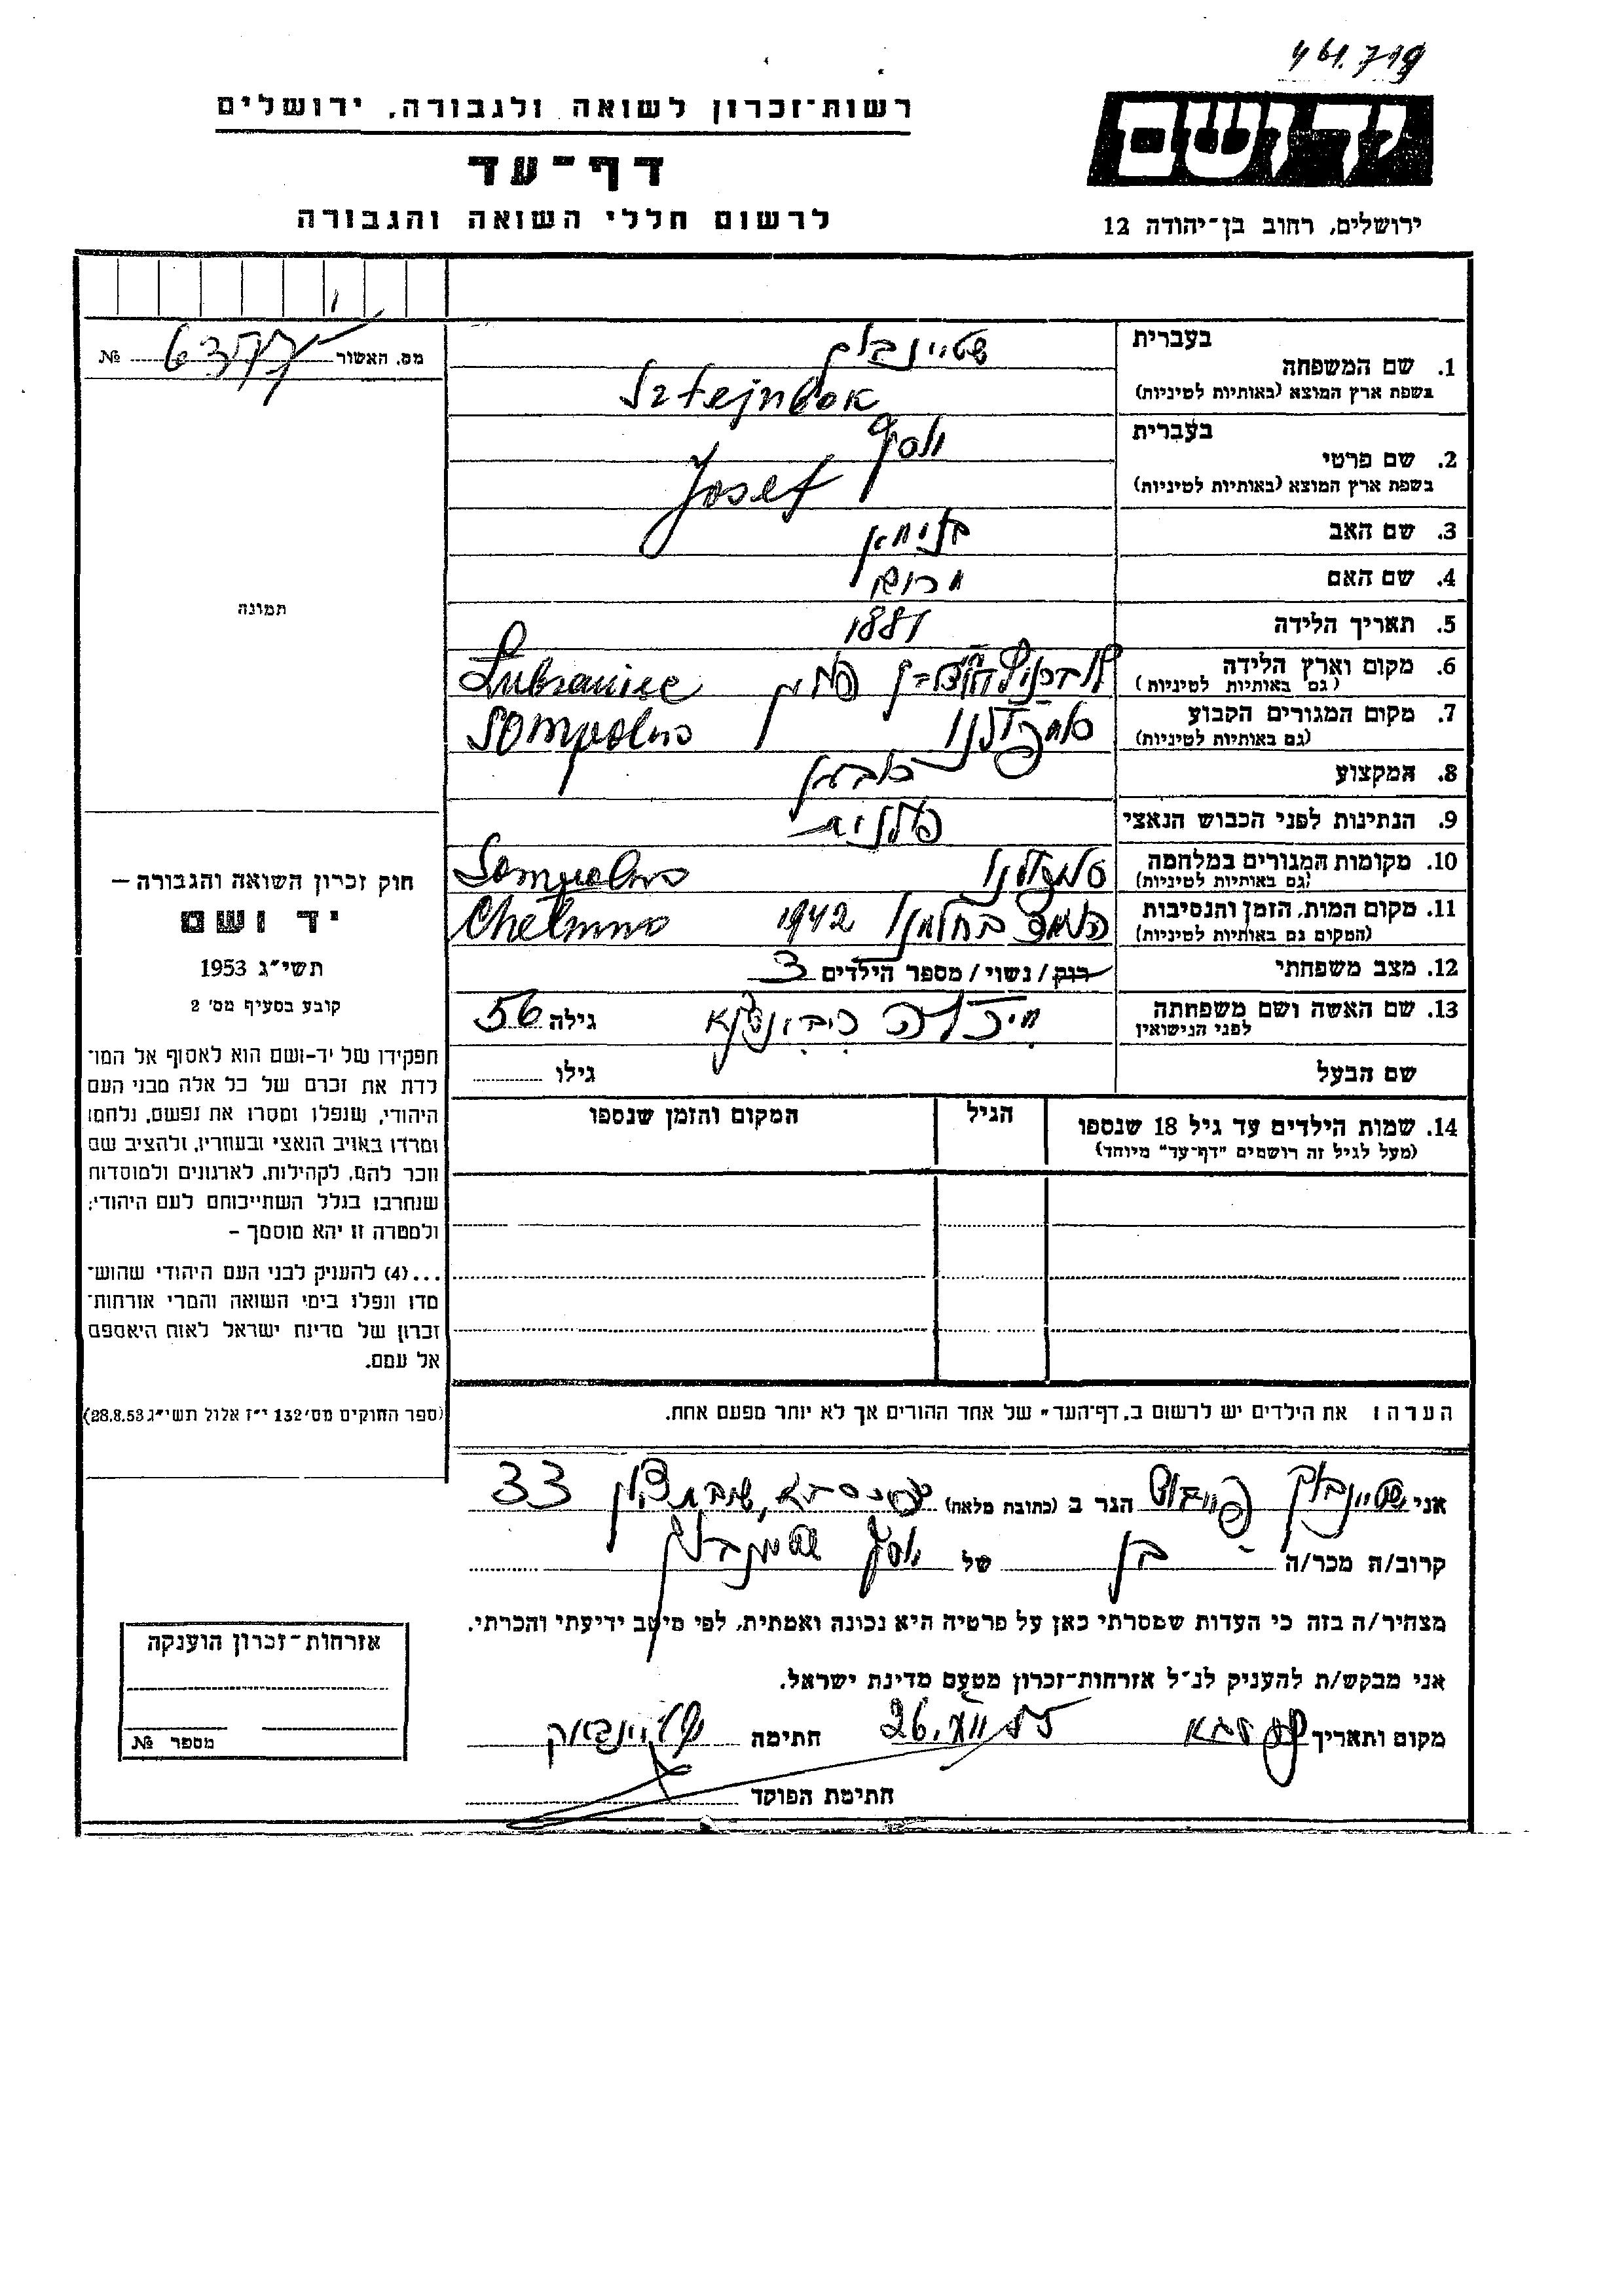 רשות־זכרון לשואה ולגבורה, ירושלים
דף־עד
לרשום חללי השואה והגבורה
יד ושם
ירושלים, רחוב בן־יהודה 12
מס. האשור № 6377
תמונה
חוק זכרון השואה והגבורה —
יד ושם
תשי״ג 1953
קובע בסעיף מס׳ 2
תפקידו של יד-ושם הוא לאסוף אל המו־
לדת את זכרם של כל אלה מבני העם
היהודי, שנפלו ומסרו את נפשם, נלחמו
ומרדו באויב הנאצי ובעוזריו, ולהציב שם
וזכר להם, לקהילות, לארגונים ולמוסדות
שנחרבו בגלל השתייכותם לעם היהודי;
ולמטרה זו יהא מוסמך –
...(4) להעניק לבני העם היהודי שהוש־
מדו ונפלו בימי השואה והמרי אזרחות־
זכרון של מדינת ישראל לאות היאספם
אל עמם.
(ספר החוקים מס׳ 132 י״ז אלול תשי״ג 28.8.53)
בעברית
1. שם המשפחה
בשפת ארץ המוצא (באותיות לטיניות) Sztejnbok
בעברית יוסף
2. שם פרטי
בשפת ארץ המוצא (באותיות לטיניות) Josef
3. שם האב
4. שם האם
5. תאריך הלידה 1881
6. מקום וארץ הלידה פולין Lubraniec
(גם באותיות לטיניות)
7. מקום המגורים הקבוע Sompolno
(גם באותיות לטיניות)
8. המקצוע
9. הנתינות לפני הכבוש הנאצי פולנית
10. מקומות המגורים במלחמה Sompolno
(גם באותיות לטיניות)
11. מקום המות, הזמן והנסיבות בחלמנו 1942 Chelmno
(המקום גם באותיות לטיניות)
12. מצב משפחתי רווק / נשוי / מספר הילדים 3
13. שם האשה ושם משפחתה גילה 56
לפני הנישואין
שם הבעל גילו
14. שמות הילדים עד גיל 18 שנספו הגיל המקום והזמן שנספו
(מעל לגיל זה רושמים "דף־עד" מיוחד)
הערה: את הילדים יש לרשום ב„דף־העד" של אחד ההורים אך לא יותר מפעם אחת.
אני שטיינבוק הגר ב (כתובת מלאה) 33
קרוב/ה מכר/ה בן של יוסף שטיינבוק
מצהיר/ה בזה כי העדות שמסרתי כאן על פרטיה היא נכונה ואמתית, לפי מיטב ידיעתי והכרתי.
אני מבקש/ת להעניק לנ״ל אזרחות־זכרון מטעם מדינת ישראל.
מקום ותאריך 26.VII.55 חתימה
חתימת הפוקד
אזרחות־זכרון הוענקה
מספר №